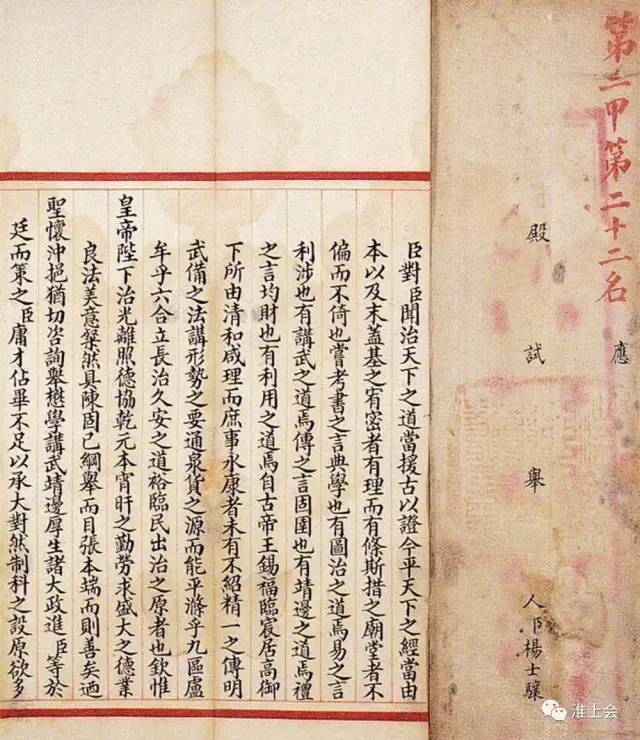 第二甲第二十二名
應
殿試舉人臣楊士驤
臣對臣聞治天下之道當援古以證今平天下之經當由
本以及末蓋基之宥密者有理而有條斯措之廟堂者不
偏而不倚也嘗考書之言典學也有圖治之道焉易之言
利涉也有講武之道焉傳之言固圉也有靖邊之道焉禮
之言均財也有利用之道焉自古帝王錫福臨宸居高御
下所由清和咸理而庶事永康者未有不紹精一之傳明
武備之法講形勢之要通泉貨之源而能平滌乎九區盧
牟乎六合立長治久安之道裕臨民出治之原者也欽惟
皇帝陛下治光離照德協乾元本宵旰之勤勞求盛大之德業
良法美意粲然具陳固已綱舉而目張本端而則善矣迺
聖懷沖挹猶切咨詢舉懋學講武靖邊厚生諸大政進臣等於
廷而策之臣庸才佔畢不足以承大對然制科之設原欲多
淮上会